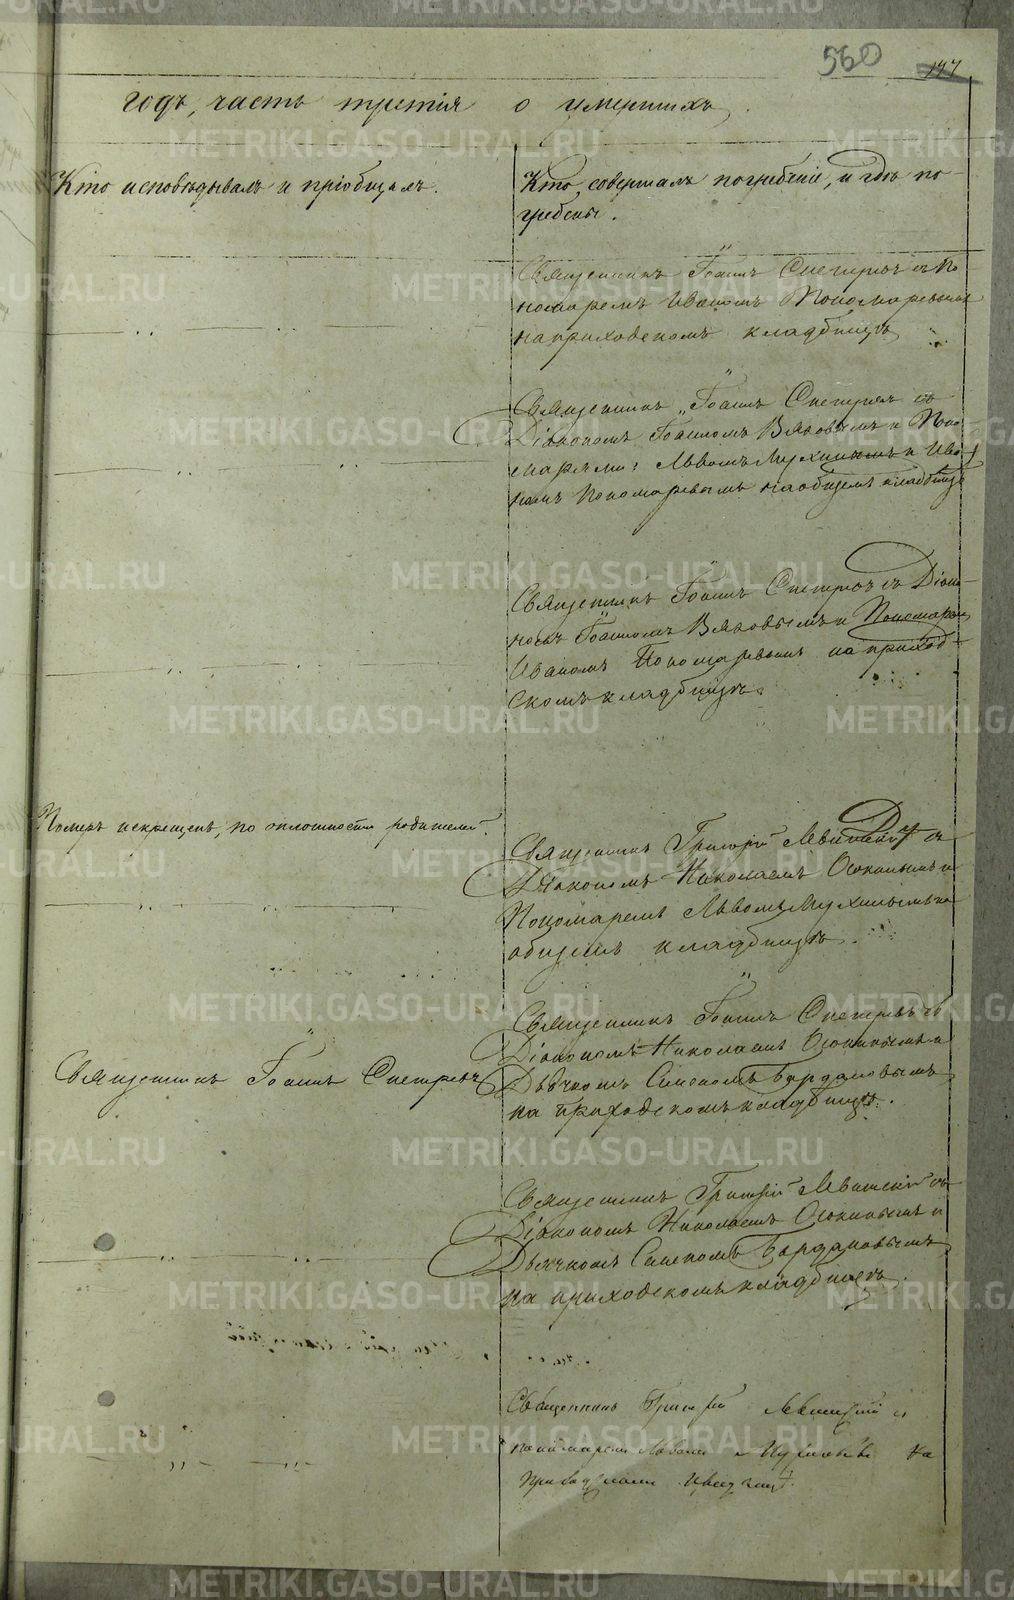 560
197
годъ, часть третія о умершихъ.
Кто исповѣдывалъ и пріобщалъ.
Кто совершалъ погребеніе, и гдѣ по-
гребены.
Священникъ Іоаннъ Снегиревъ съ По
номаремъ Иваномъ Пономаревымъ
на приходскомъ кладбищѣ
Священникъ Іоаннъ Снегиревъ съ
Діакономъ Іоанномъ Вяховымъ и Поно
марями: Львомъ Мухинымъ и Ива
номъ Пономаревымъ на общемъ кладбищѣ
Священникъ Іоаннъ Снегиревъ съ Діако-
номъ Іоанномъ Вяховымъ и Пономаремъ
Иваномъ Пономаревымъ на приход-
скомъ кладбищѣ.
Померъ некрещенъ, по оплошности родителей.
Священникъ Григорій Левитскій съ
Діакономъ Николаемъ Осокинымъ и
Пономаремъ Львомъ Мухинымъ на
общемъ кладбищѣ.
Священникъ Іоаннъ Снегиревъ
Священникъ Іоаннъ Снегиревъ съ
Діакономъ Николаемъ Осокинымъ и
Дьячкомъ Семеномъ Бурдаковымъ
на приходскомъ кладбищѣ.
Священникъ Григорій Левитскій съ
Діакономъ Николаемъ Осокинымъ и
Дьячкомъ Семеномъ Бурдаковымъ
на приходскомъ кладбищѣ.
Священникъ Григорій Левитскій съ
пономаремъ Львомъ Мухинымъ на
METRIKI.GASO-URAL.RU